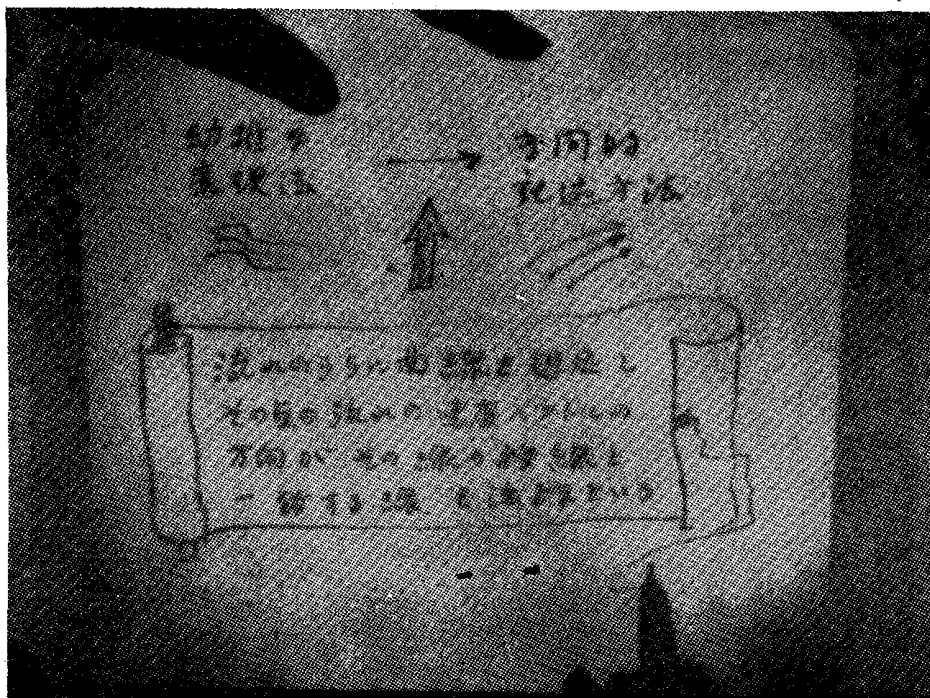 幼稚な
表現法
→
学問的
記述方法
流れのうちに曲線を想定し
その点の流れの速度ベクトルの
方向がその線の接線と
一致する線を流線という